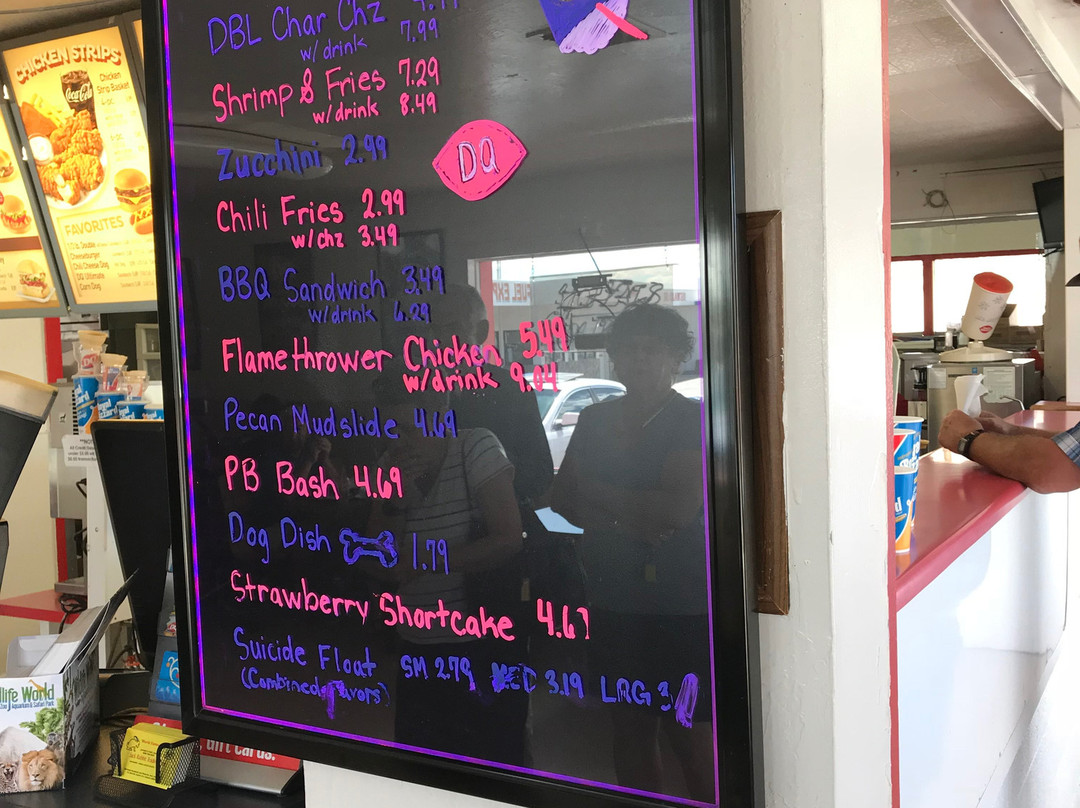 DBL Char Chz
w/drink 7.99
Shrimp & Fries 7.29
w/drink 8.49
Zucchini 2.99
DQ
Chili Fries 2.99
w/chz 3.49
BBQ Sandwich 3.49
w/drink 6.29
Flamethrower Chicken 5.49
w/drink 9.04
Pecan Mudslide 4.69
PB Bash 4.69
Dog Dish 1.79
Strawberry Shortcake 4.69
Suicide Float SM 2.79 MED 3.19 LRG 3.
(Combined flavors)
CHICKEN STRIPS
Coca-Cola
Chicken
Strip Basket
FAVORITES
Cheeseburger
Chili Cheese Dog
Corn Dog
life World
Aquarium & Safari Park
Gift Cards.
FUEL EXP